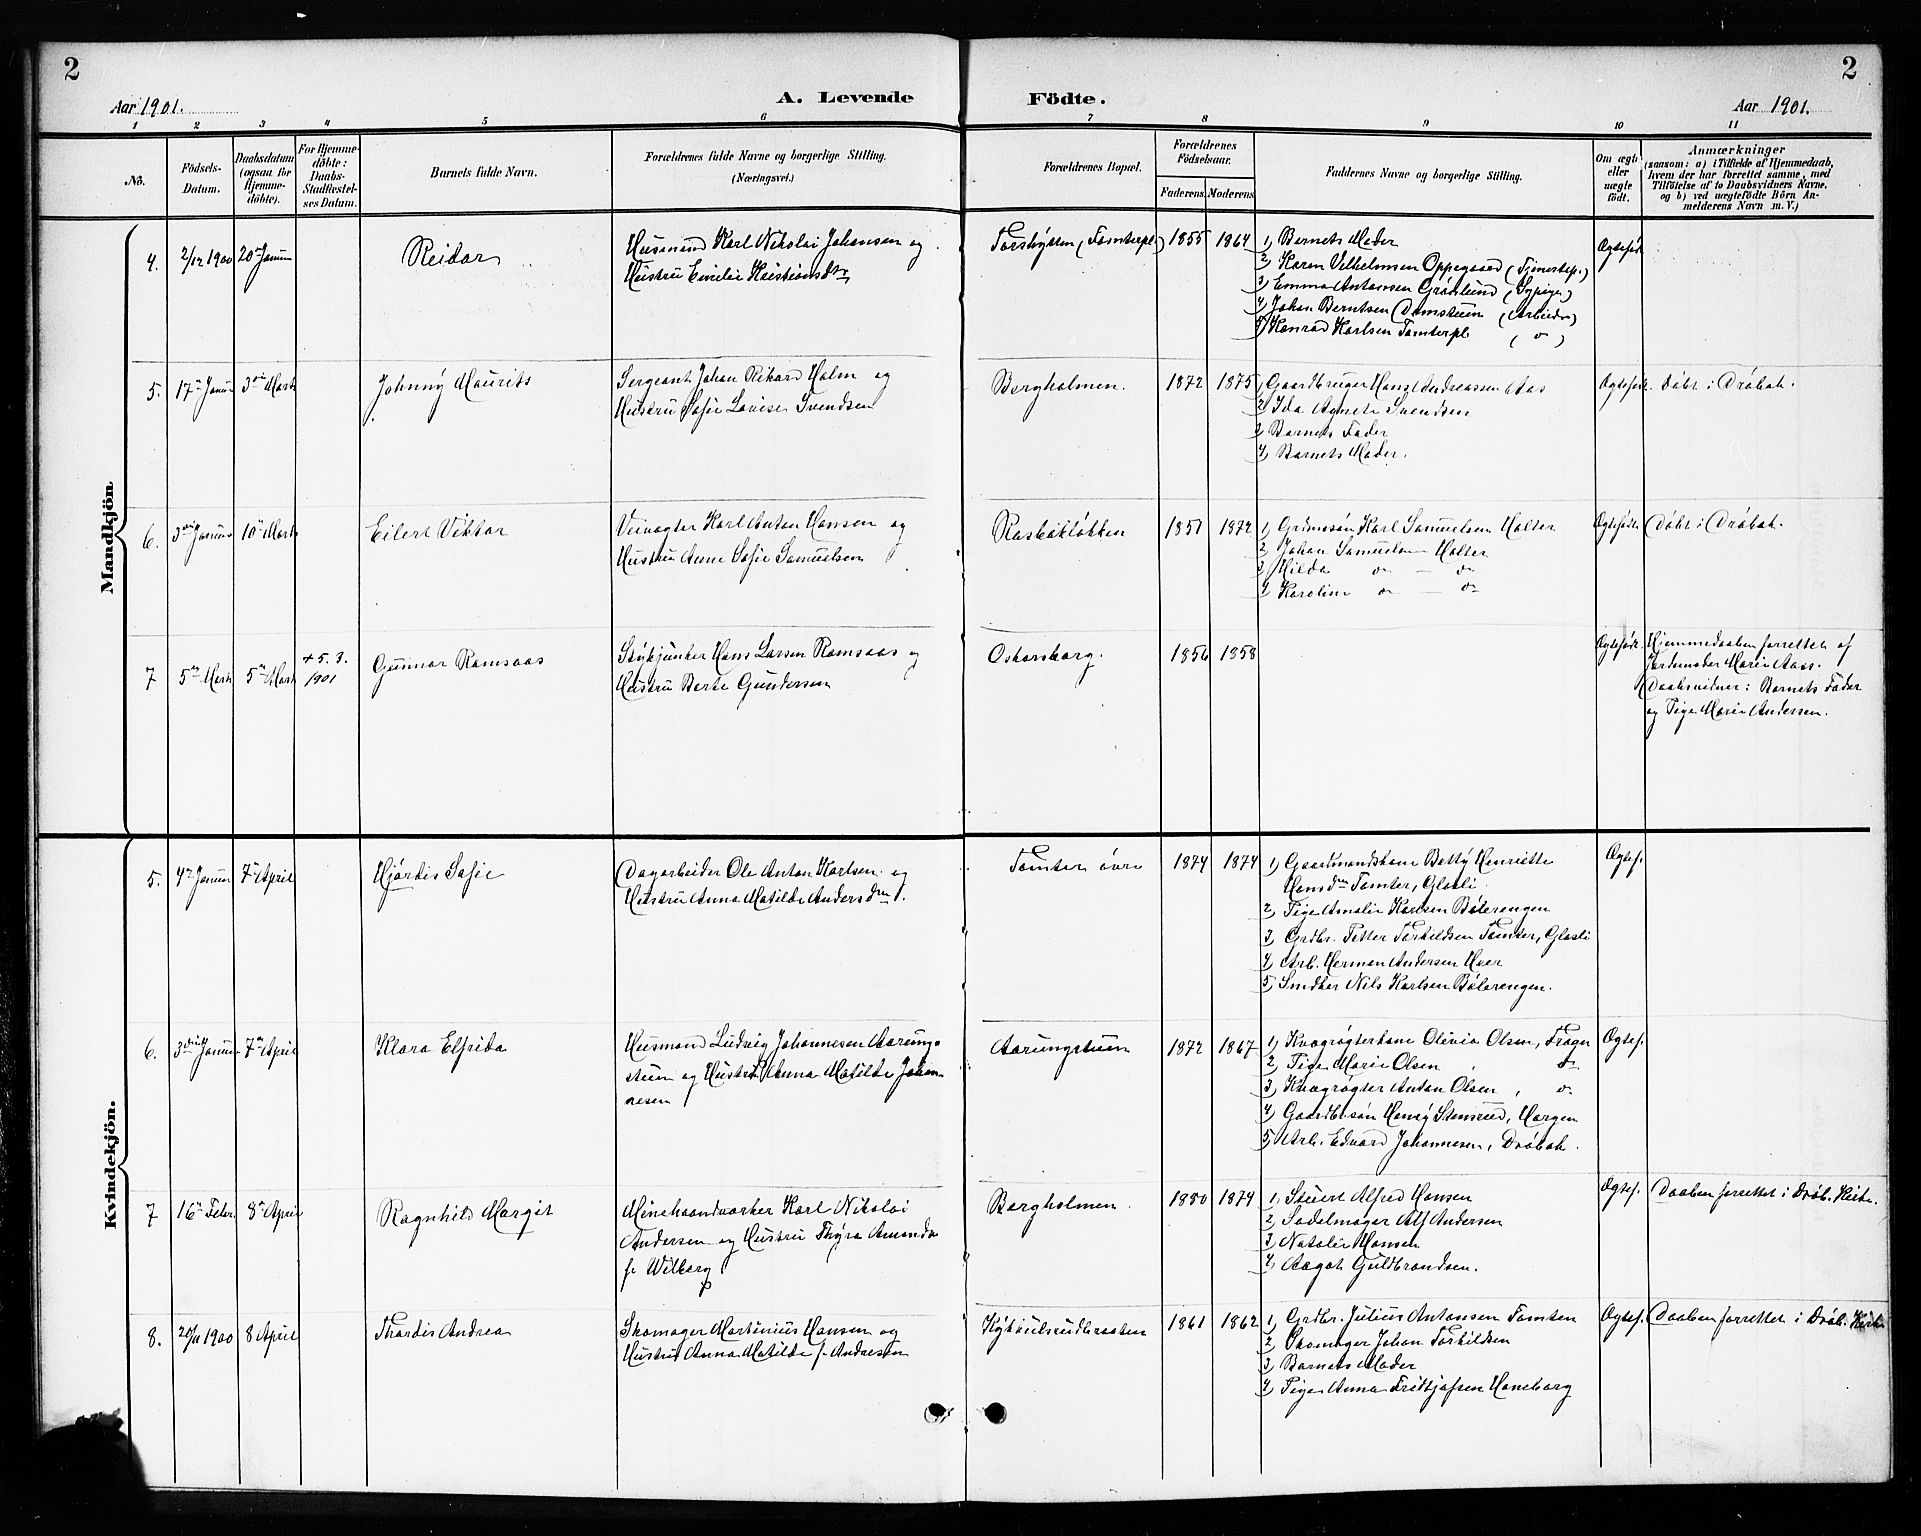 2
2
Aar 1901.
A. Levende Födte.
Aar 1901.
1 2 3 4 5 6 7 8 9 10 11
No.
Födsels-
Datum.
Daabsdatum
(ogsaa for
Hjemme-
döbte).
For Hjemme-
döbte:
Daabs-
Stadfæstel-
ses Datum.
Barnets fulde Navn.
Forældrenes fulde Navne og borgerlige Stilling.
(Næringsvei.)
Forældrenes Bopæl.
Forældrenes
Födselsaar.
Faderens Moderens
Faddernes Navne og borgerlige Stilling.
Om ægte
eller
uægte
födt.
Anmærkninger
(saasom: a) i Tilfælde af Hjemmedaab,
hvem der har forrettet samme, med
Tilföielse af to Daabsvidners Navne,
og b) ved uægtefödte Börn An-
melderens Navn m. V.)
Mandkjön
4. 2/12 1900 20de Januar
Reidar
Husmand Karl Nikolai Johansen og
Hustru Emilie Kristiansdtr
Torshytten (Tomterpl.) 1855 1864
1) Barnets Moder
2) Karen Vilhelmsen Oppegaard (Tjenestep.)
3) Emma Antonsen Grönlund (Sypige)
4) Johan Berntsen Damstuen (Arbeider)
5) Konrad Karlsen Tomterpl. (do)
Ægtefödt
5. 17de Januar 3die Marts
Johnny Maurits
Sergeant Johan Rikard Holm og
Hustru Sofie Lovise Svendsen
Bergholmen. 1872 1875
1) Gaardbruger Hans Andreassen Aas
2) Ida Agnete Svendsen
3) Barnets Fader
4) Barnets Moder.
Ægtefödt. Döbt i Dröbak.
6. 3die Januar 10de Marts
Eilert Viktor
Veivogter Karl Anton Hansen og
Hustru Anne Sofie Samuelsen
Raskeklökken 1851 1872
1) Grdmssön Karl Samuelsen Holter
2) Johan Samuelsen Holter
3) Hilda do — do
4) Karoline do — do
Ægtefödt. Döbt i Dröbak.
7 5te Marts 5te Marts + 5. 3.
1901
Gunnar Ramsaas
Stykjunker Hans Larsen Ramsaas og
Hustru Berte Gundersen
Oskarsborg. 1856 1858
Ægtefödt.
Hjemmedaaben forrettet af
Jordemoder Marie Aas.
Daabsvidner: Barnets Fader
og Pige Marie Andersen.
Kvindekjön.
5. 4de Januar 7de April
Hjördis Sofie
Dagarbeider Ole Anton Karlsen og
Hustru Anna Matilde Andersdtr.
Tomter övre 1874 1874
1) Gaardmandskone Betty Henriette
Hansdtr Tomter, Glasli.
2) Pige Amalie Karlsen Bölerengen
3) Grdbr. Petter Torkildsen Tomter, Glasli
4) Arb. Herman Andersen Huer
5) Smdker Nils Karlsen Bölerengen.
Ægtef.
6. 3die Januar 7de April
Klara Elfrida
Husmand Ludvig Johannesen Aarung-
stuen og Hustru Anna Matilde Johan-
nesen
Aarungstuen 1872 1867
1) Kvægrögterkone Olivia Olsen, Frogn
2) Pige Marie Olsen , do
3) Kvægrögter Anton Olsen , do
4) Gaardb.sön Henry Stensrud, Horgen
5) Arb. Edvard Johannesen, Dröbak.
Ægtef.
7 16de Febr 8de April
Ragnhild Margit
Minehaandværker Karl Nikolai
Andersen og Hustru Thyra Amanda
f. Wilberg
Bergholmen. 1880 1874
1) Stuert Alfred Hansen
2) Sadelmager Alf Andersen
3) Natalie Hansen
4) Aagot Guldbrandsen.
Ægtef. Daaben forrettet i Dröb. Kirke.
8. 25/11 1900 8 April
Thordis Andrea
Skomager Martinius Hansen og
Hustru Anna Matilde f. Andresen
1861 1862
1) Grdbr. Julius Antonsen Tomten
2) Skomager Johan Torkildsen
3) Barnets Moder
4) Pige Anna Fridtjofsen Haneborg
Ægtef. Daaben forrettet i Dröb. Kirke